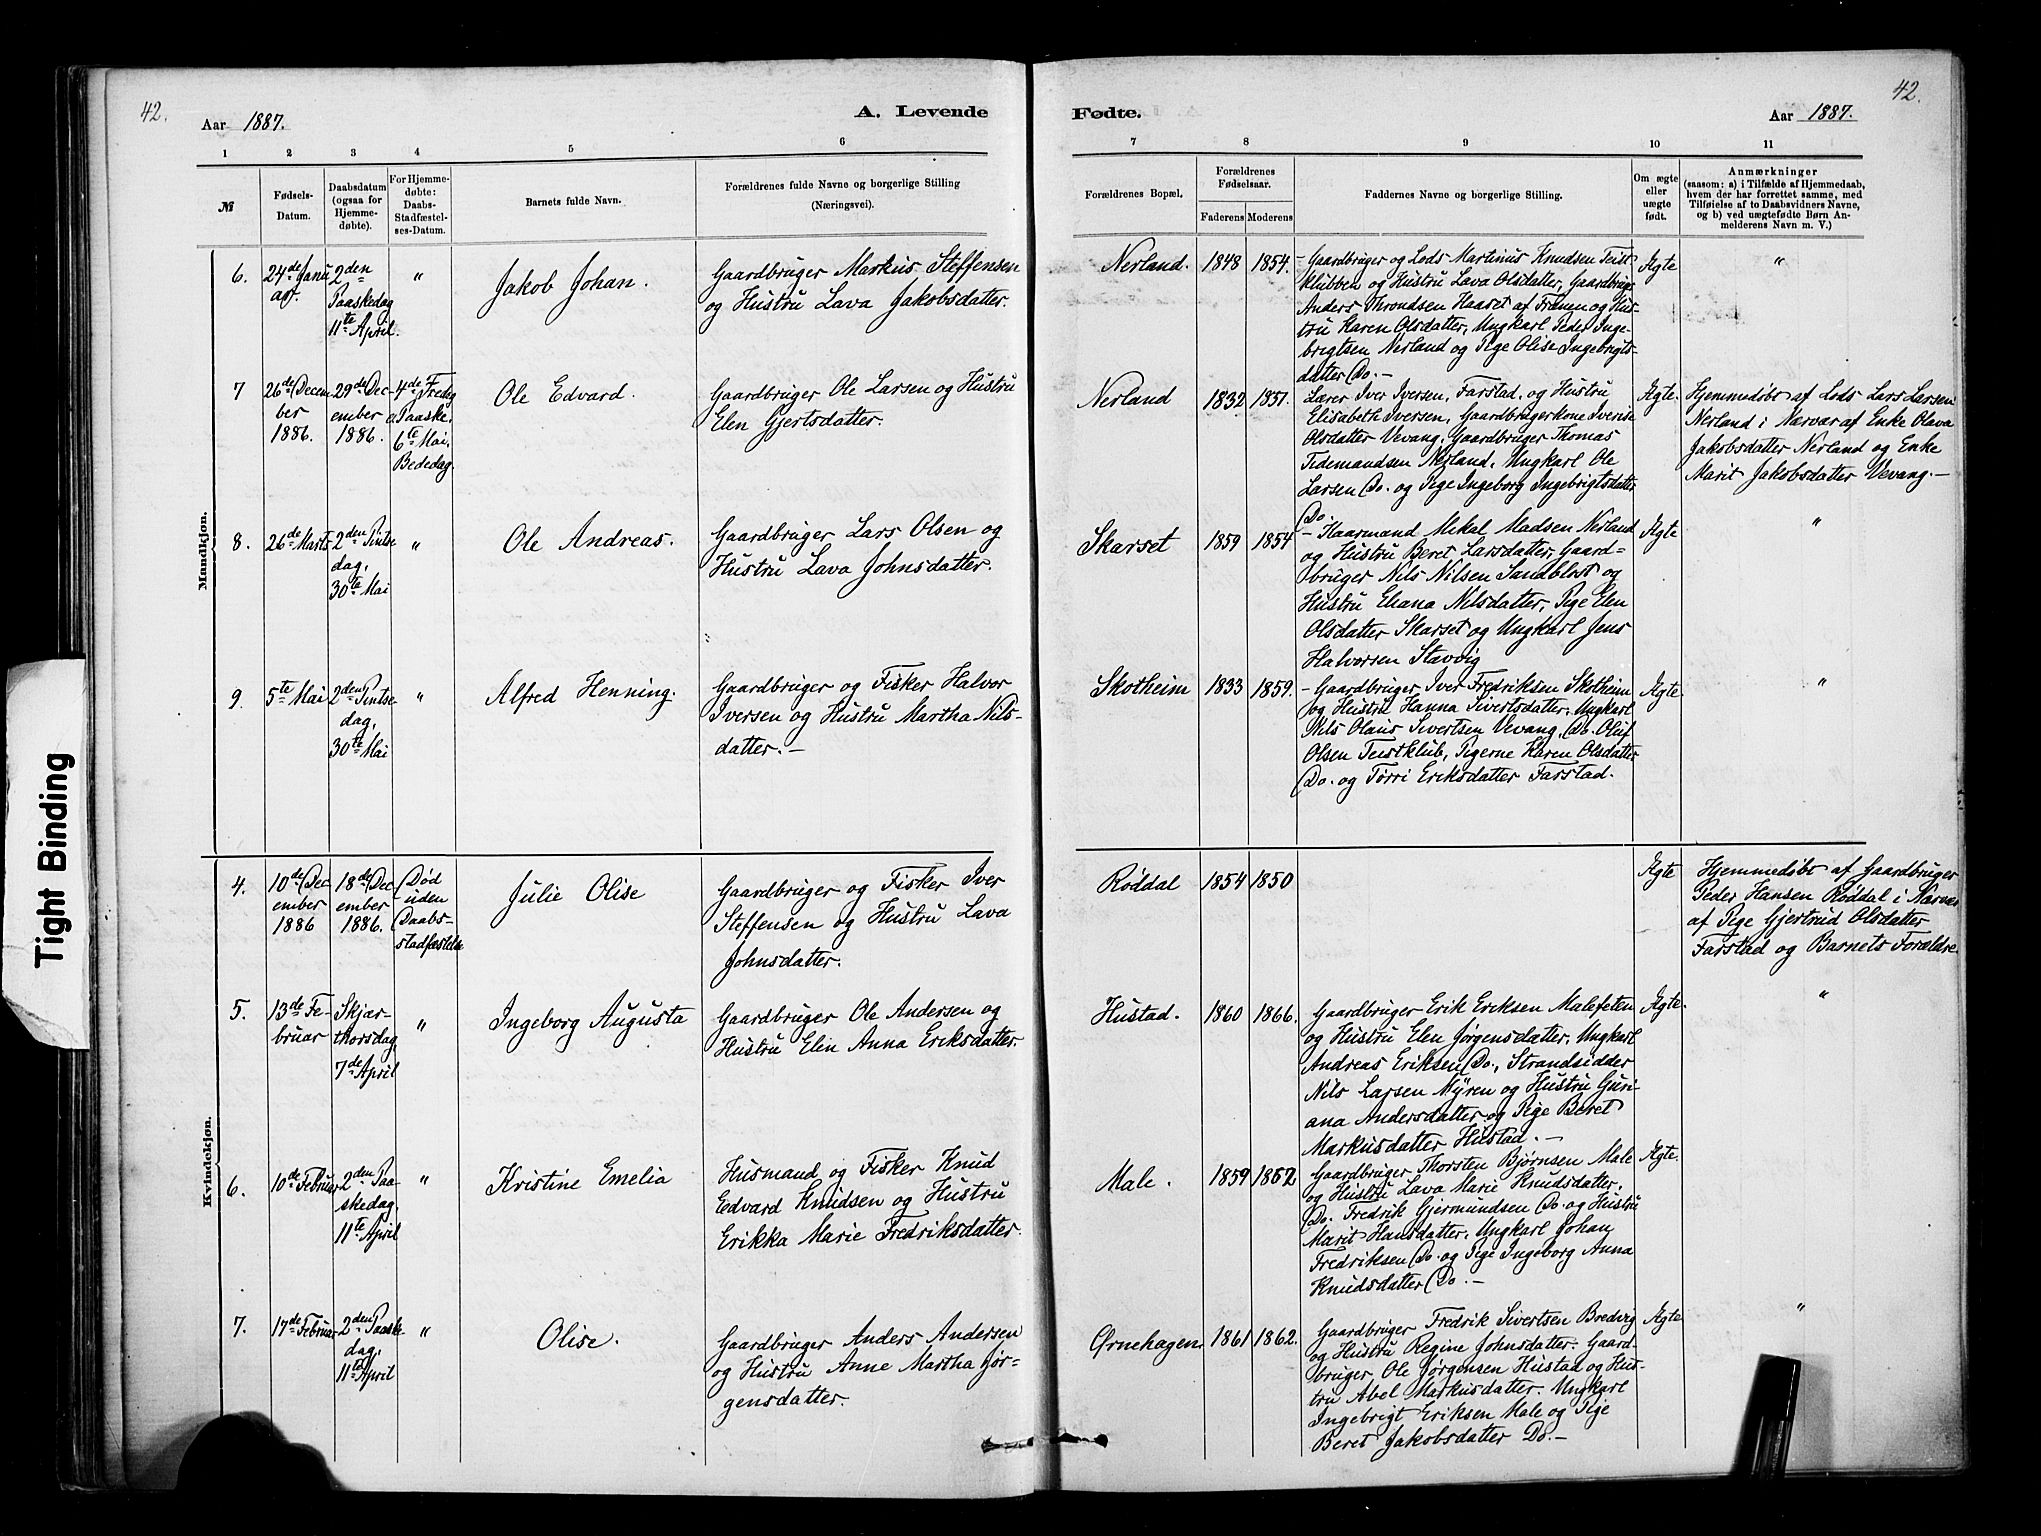 42.
Aar 1887.
A. Levende
Fødte.
Aar 1887.
42.
1 2 3 4 5 6 7 8 9 10 11
№
Fødsels-
Datum.
Daabsdatum
(ogsaa for
Hjemme-
døbte).
For Hjemme-
døbte:
Daabs-
Stadfæstel-
ses-Datum.
Barnets fulde Navn.
Forældrenes fulde Navne og borgerlige Stilling
(Næringsvei).
Forældrenes Bopæl.
Forældrenes
Fødselsaar.
Faderens Moderens
Faddernes Navne og borgerlige Stilling.
Om ægte
eller
uægte
født.
Anmærkninger
(saasom: a) i Tilfælde af Hjemmedaab,
hvem der har forrettet samme, med
Tilføielse af to Daabsvidners Navne,
og b) ved uægtefødte Børn An-
melderens Navn m. V.)
Mandkjøn.
6.
24de Janu
ar.
2den
Paaskedag
11te April.
"
Jakob Johan.
Gaardbruger Markus Steffensen
og Hustru Lava Jakobsdatter.
Nerland.
1848
1854.
- Gaardbruger og Lods Martinus Knudsen Teist
klubben og Hustru Lava Olsdatter, Gaardbruger
Anders Throndsen Haaset af Frænen og Hus-
tru Karen Olsdatter, Ungkarl Peder Inge-
brigtsen Nerland og Pige Olise Ingebrigts-
datter Do. -
Ægte
"
7
26de Decem
ber
1886.
29de Dec
ember
1886.
4de Fredag
e. Paaske.
6te Mai,
Bededag.
Ole Edvard.
Gaardbruger Ole Larsen og Hustru
Elen Gjertsdatter.
Nerland
1832
1851.
Lærer Iver Iversen, Farstad, og Hustru
Elisabeth Iversen, Gaardbrugerkone Iverine
Olsdatter Vevang, Gaardbruger Thomas
Tidemandsen Nerland, Ungkarl Ole
Larsen Do. og Pige Ingeborg Ingebrigtsdatter
Do.
Ægte.
Hjemmedøbt af Lods Lars Larsen
Nerland i Nærvær af Enke Olava
Jakobsdatter Nerland og Enke
Marit Jakobsdatter Vevang. -
8.
26de Marts
2den Pintse
dag,
30te Mai
"
Ole Andreas.
Gaardbruger Lars Olsen og
Hustru Lava Johnsdatter.
Skarset
1859
1854
- Kaarmand Mekal Madsen Nerland
og Hustru Beret Larsdatter, Gaard-
bruger Nils Nilsen Sandblost og
Hustru Eliana Nilsdatter, Pige Elen
Olsdatter Skarset og Ungkarl Jens
Halvorsen Stavvig
Ægte
"
9.
5te Mai
2den Pintse
dag,
30te Mai
"
Alfred Henning.
Gaardbruger og Fisker Halvor
Iversen og Hustru Martha Nils-
datter. -
Skotheim
1833
1859.
- Gaardbruger Iver Fredriksen Skotheim
og Hustru Hanna Sivertsdatter, Ungkarl
Nils Olaus Sivertsen Vevang, Do. Oluf
Olsen Teistklub, Pigerne Karen Olsdatter
Do. og Tørri Eriksdatter Farstad.
Ægte
"
Kvindekjøn.
4.
10de Dec
ember
1886
18de Dec
ember
1886.
Død
uden
Daabs-
stadfæstelse
Julie Olise
Gaardbruger og Fisker Iver
Steffensen og Hustru Lava
Johnsdatter.
Røddal
1854
1850
Ægte
Hjemmedøbt af Gaardbruger
Peder Hansen Røddal i Nærvær
af Pige Gjertrud Olsdatter
Farstad og Barnets Forældre.
5.
13de Fe-
bruar
Skjær-
thorsdag
7de April
"
Ingeborg Augusta
Gaardbruger Ole Andersen og
Hustru Elin Anna Eriksdatter.
Hustad.
1860
1866.
Gaardbruger Erik Eriksen Malefeten
og Hustru Elen Jørgensdatter, Ungkarl
Andreas Eriksen Do., Strandsidder
Nils Larsen Myren og Hustru Guri-
ana Andersdatter og Pige Beret
Markusdatter Hustad. -
Ægte.
"
6.
10de Februar
2den Paa-
skedag,
11te April
"
Kristine Emelia
Husmand og Fisker Knud
Edvard Knudsen og Hustru
Erikka Marie Fredriksdatter.
Male.
1859
1862
Gaardbruger Thorsten Bjørnsen Male
og Hustru Lava Marie Knudsdatter,
Do. Fredrik Gjermundsen Do. og Hustru
Marit Hansdatter, Ungkarl Johan
Fredriksen Do. og Pige Ingeborg Anna
Knudsdatter Do. -
Ægte.
7.
17de Februar
2den Paaske
dag,
11te April
"
Olise.
Gaardbruger Anders Andersen
og Hustru Anne Martha Jør-
gensdatter.
Ørnehagen
1861
1862.
Gaardbruger Fredrik Sivertsen Bredvig
og Hustru Regine Johnsdatter, Gaard-
bruger, Ole Jørgensen Hustad og Hus-
tru Abel Markusdatter, Ungkarl
Ingebrigt Eriksen Male og Pige
Beret Jakobsdatter Do. -
Ægte
"
Tight Binding